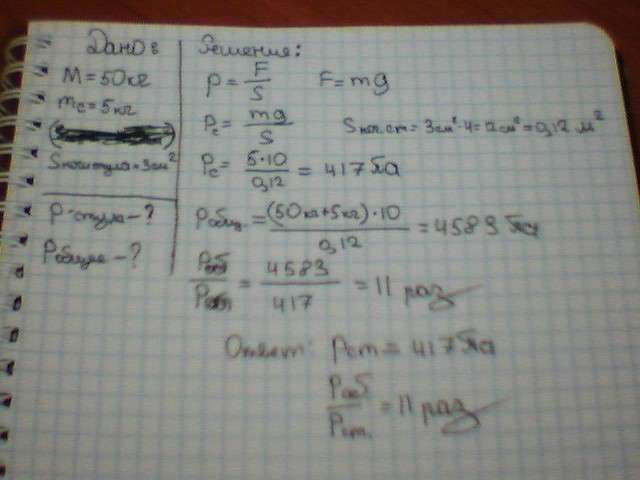 Дано:
M = 50кг
mc = 5кг
Sножки стула = 3см²
P стула - ?
Pобщее - ?
Решения:
P = F/S F = mg
Pc = mg/S Sнож.ст = 3см²·4 = 12см² = 0,12 м²
Pc = 5·10/0,12 = 417 Па
Pобщ. = (50кг+5кг)·10/0,12 = 4583 Па
Pоб/Pст = 4583/417 = 11 раз
Ответ: Pст = 417 Па
Pоб/Pст. = 11 раз